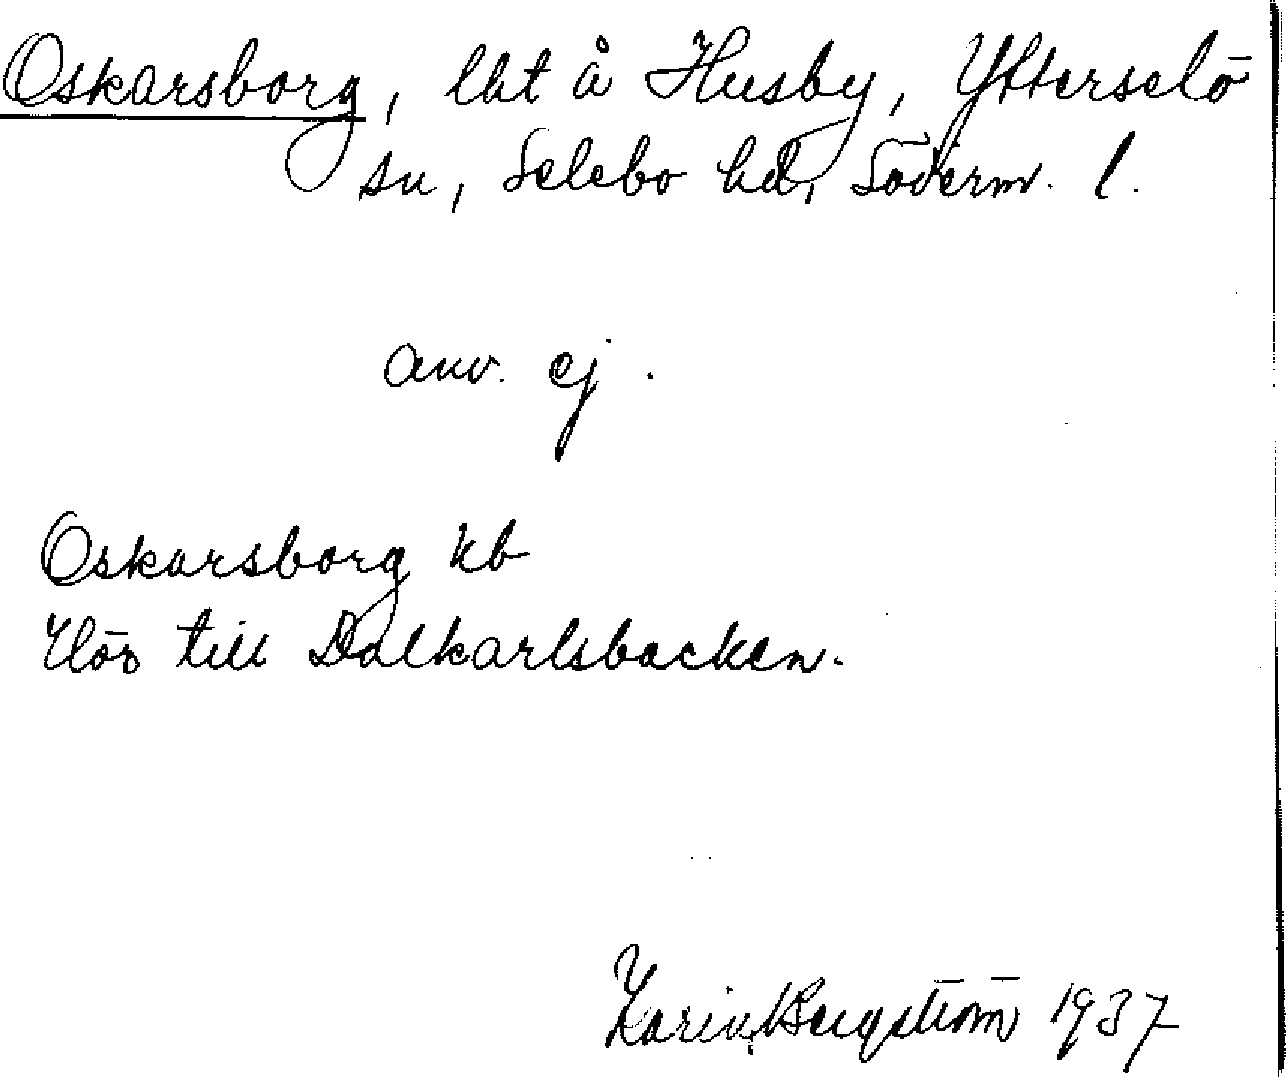 Oskarsborg, lht å Husby, Ytterselö
sn, Selebo hd, Söderm. l.
anv. ej.
Oskarsborg kb
Hör till Dalkarlsbacken.
Karin Bergström 1937